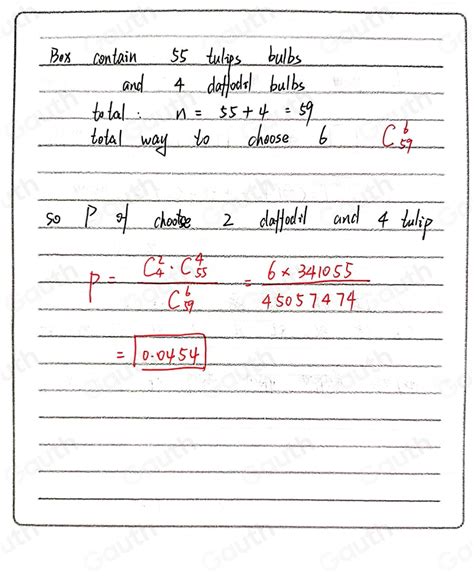 Box contain 55 tulips bulbs
and 4 daffodil bulbs
total: n = 55 + 4 = 59
total way to choose 6 C⁶₅₉
so P of choose 2 daffodil and 4 tulip
P = C²₄ · C⁴₅₅ / C⁶₅₉ = 6 × 341055 / 45057474
= 0.0454